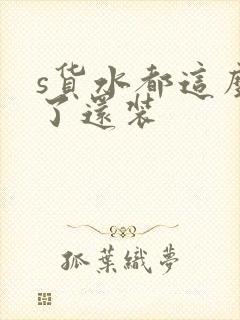 s货水都這麼
了還装
孤葉織夢